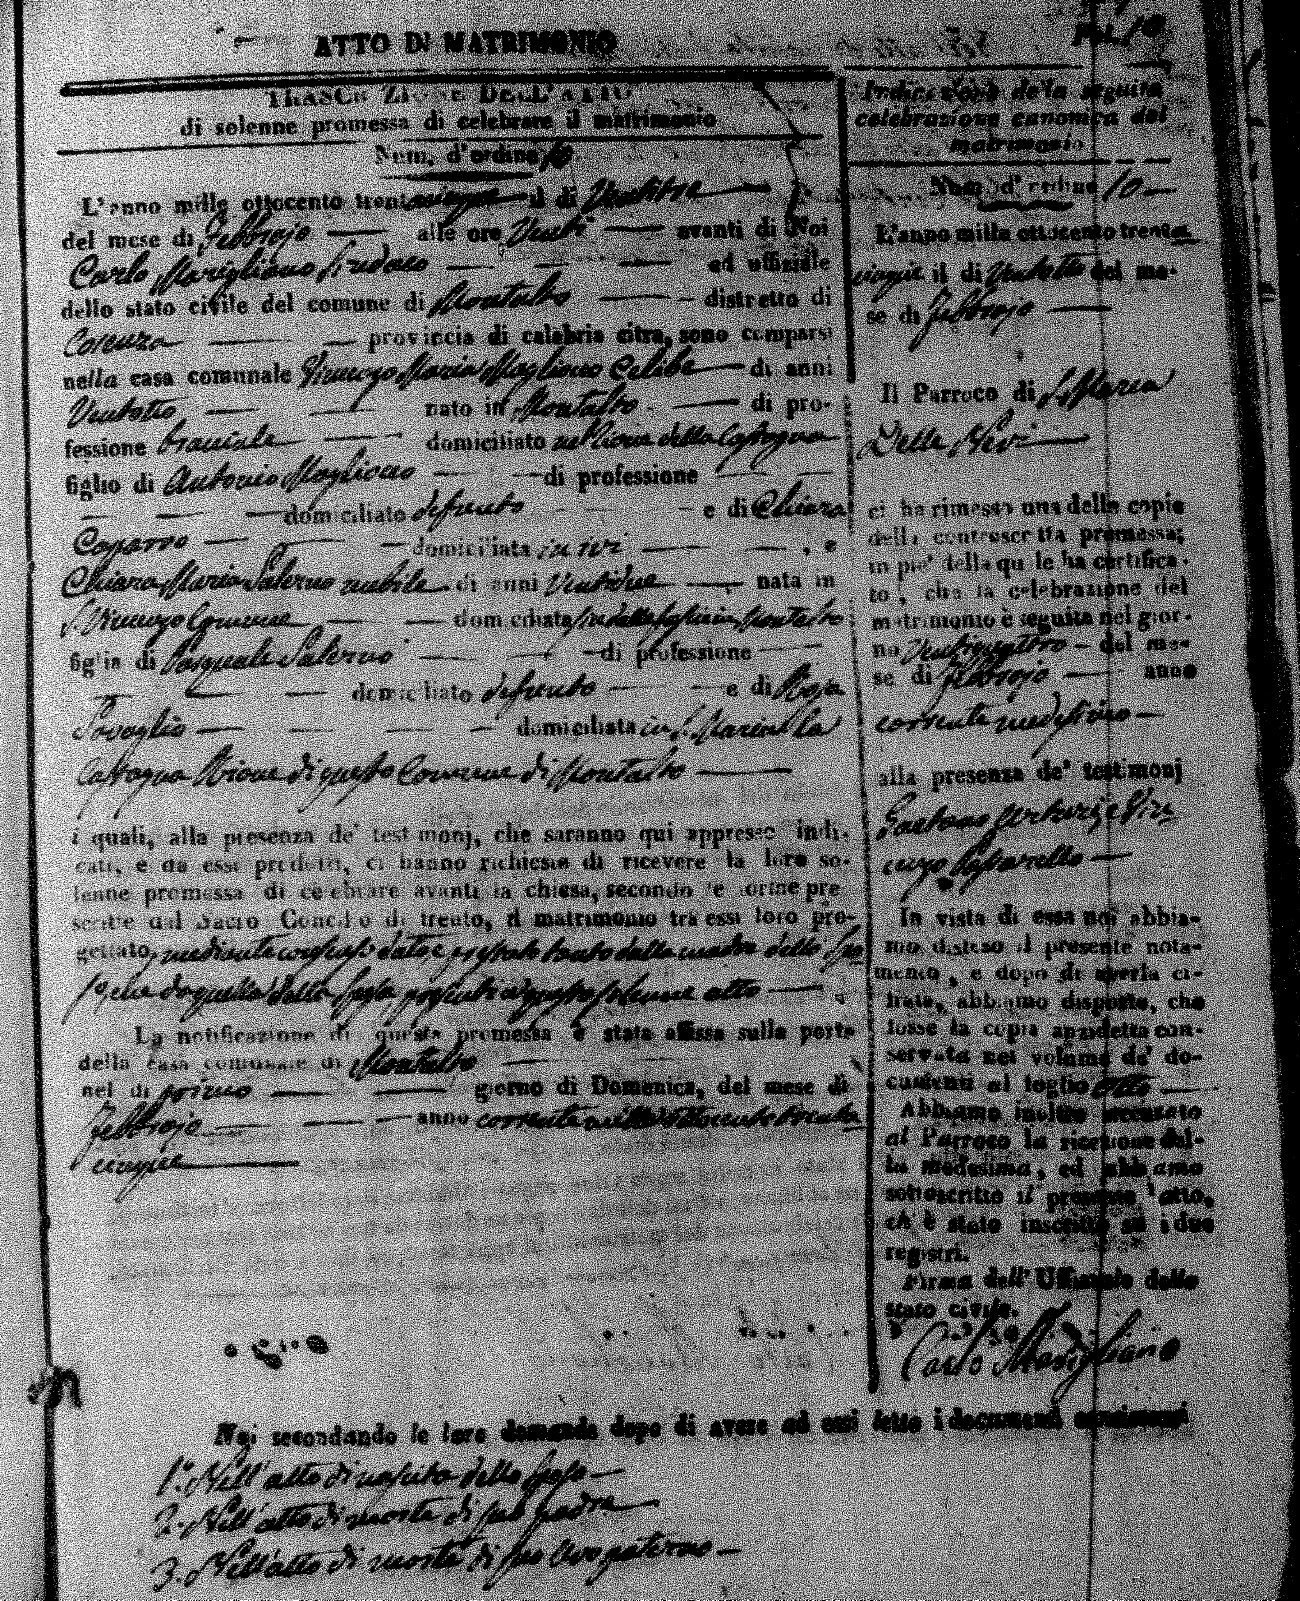 ATTO DI MATRIMONIO
TRASCRIZIONE DELL'ATTO
di solenne promessa di celebrare il matrimonio
Num. d'ordine 10
L'anno mille ottocento trentacinque il di Ventitre
del mese di Febbrajo alle ore Venti avanti di Noi
Carlo Marigliano Sindaco ed uffiziale
dello stato civile del comune di Montalto distretto di
Cosenza provincia di calabria citra, sono comparsi
nella casa comunale Vincenzo Maria Magliocco Celibe di anni
Ventotto nato in Montalto di pro-
fessione bracciale domiciliato nel Rione della Castagna
figlio di Antonio Magliocco di professione
domiciliato defunto e di Chiara
domiciliata in ivi , e
Chiara Maria Salerno nubile di anni Ventidue nata in
S. Vincenzo Comune domiciliata in Montalto
figlia di Pasquale Salerno di professione
domiciliato defunto e di Rosa
domiciliata in
Castagna Rione di questo Comune di Montalto
i quali, alla presenza de' testimonj, che saranno qui appresso indi-
cati, e da essi prodotti, ci hanno richiesto di ricevere la loro so-
lenne promessa di celebrare avanti la chiesa, secondo le forme pre
scritte dal Sacro Concilio di trento, il matrimonio tra essi loro pro-
gettato, mediante consenso dato e prestato tanto dalla madre dello Spo
so, che da quella della Sposa presenti a questo solenne atto
La notificazione di questa promessa è stata affissa sulla porta
della casa comunale di Montalto
nel di primo giorno di Domenica, del mese di
Febbrajo anno corrente mille ottocento trenta
cinque
Noi secondando le loro domande dopo di avere ad essi letto i documenti consistenti
1.º Nell'atto di nascita dello Sposo
2. Nell'atto di morte di suo padre
3. Nell'atto di morte di suo Avo paterno
Fol. 10
Indicazione della seguita
celebrazione canonica del
matrimonio
Num. d'ordine 10
L'anno mille ottocento trenta
cinque il di Ventotto del me-
se di Febbrajo
Il Parroco di S. Maria
Della Nevi
ci ha rimesso una delle copie
della controscritta promessa;
in pie' della quale ha certifica-
to, che la celebrazione del
matrimonio è seguita nel gior-
no Ventiquattro del me-
se di Febbrajo anno
corrente medesimo
alla presenza de' testimonj
Gaetano
cenzo
In vista di essa noi abbia-
mo disteso il presente nota-
mento, e dopo di averla ci-
frata, abbiamo disposto, che
fosse la copia anzidetta con-
servata nel volume de' do-
cumenti al foglio otto
Abbiamo inoltre accusato
al Parroco la ricezione del-
la medesima, ed abbiamo
sottoscritto il presente atto,
ch' è stato inscritto su i due
registri.
Firma dell' Uffiziale dello
stato civile.
Carlo Marigliano